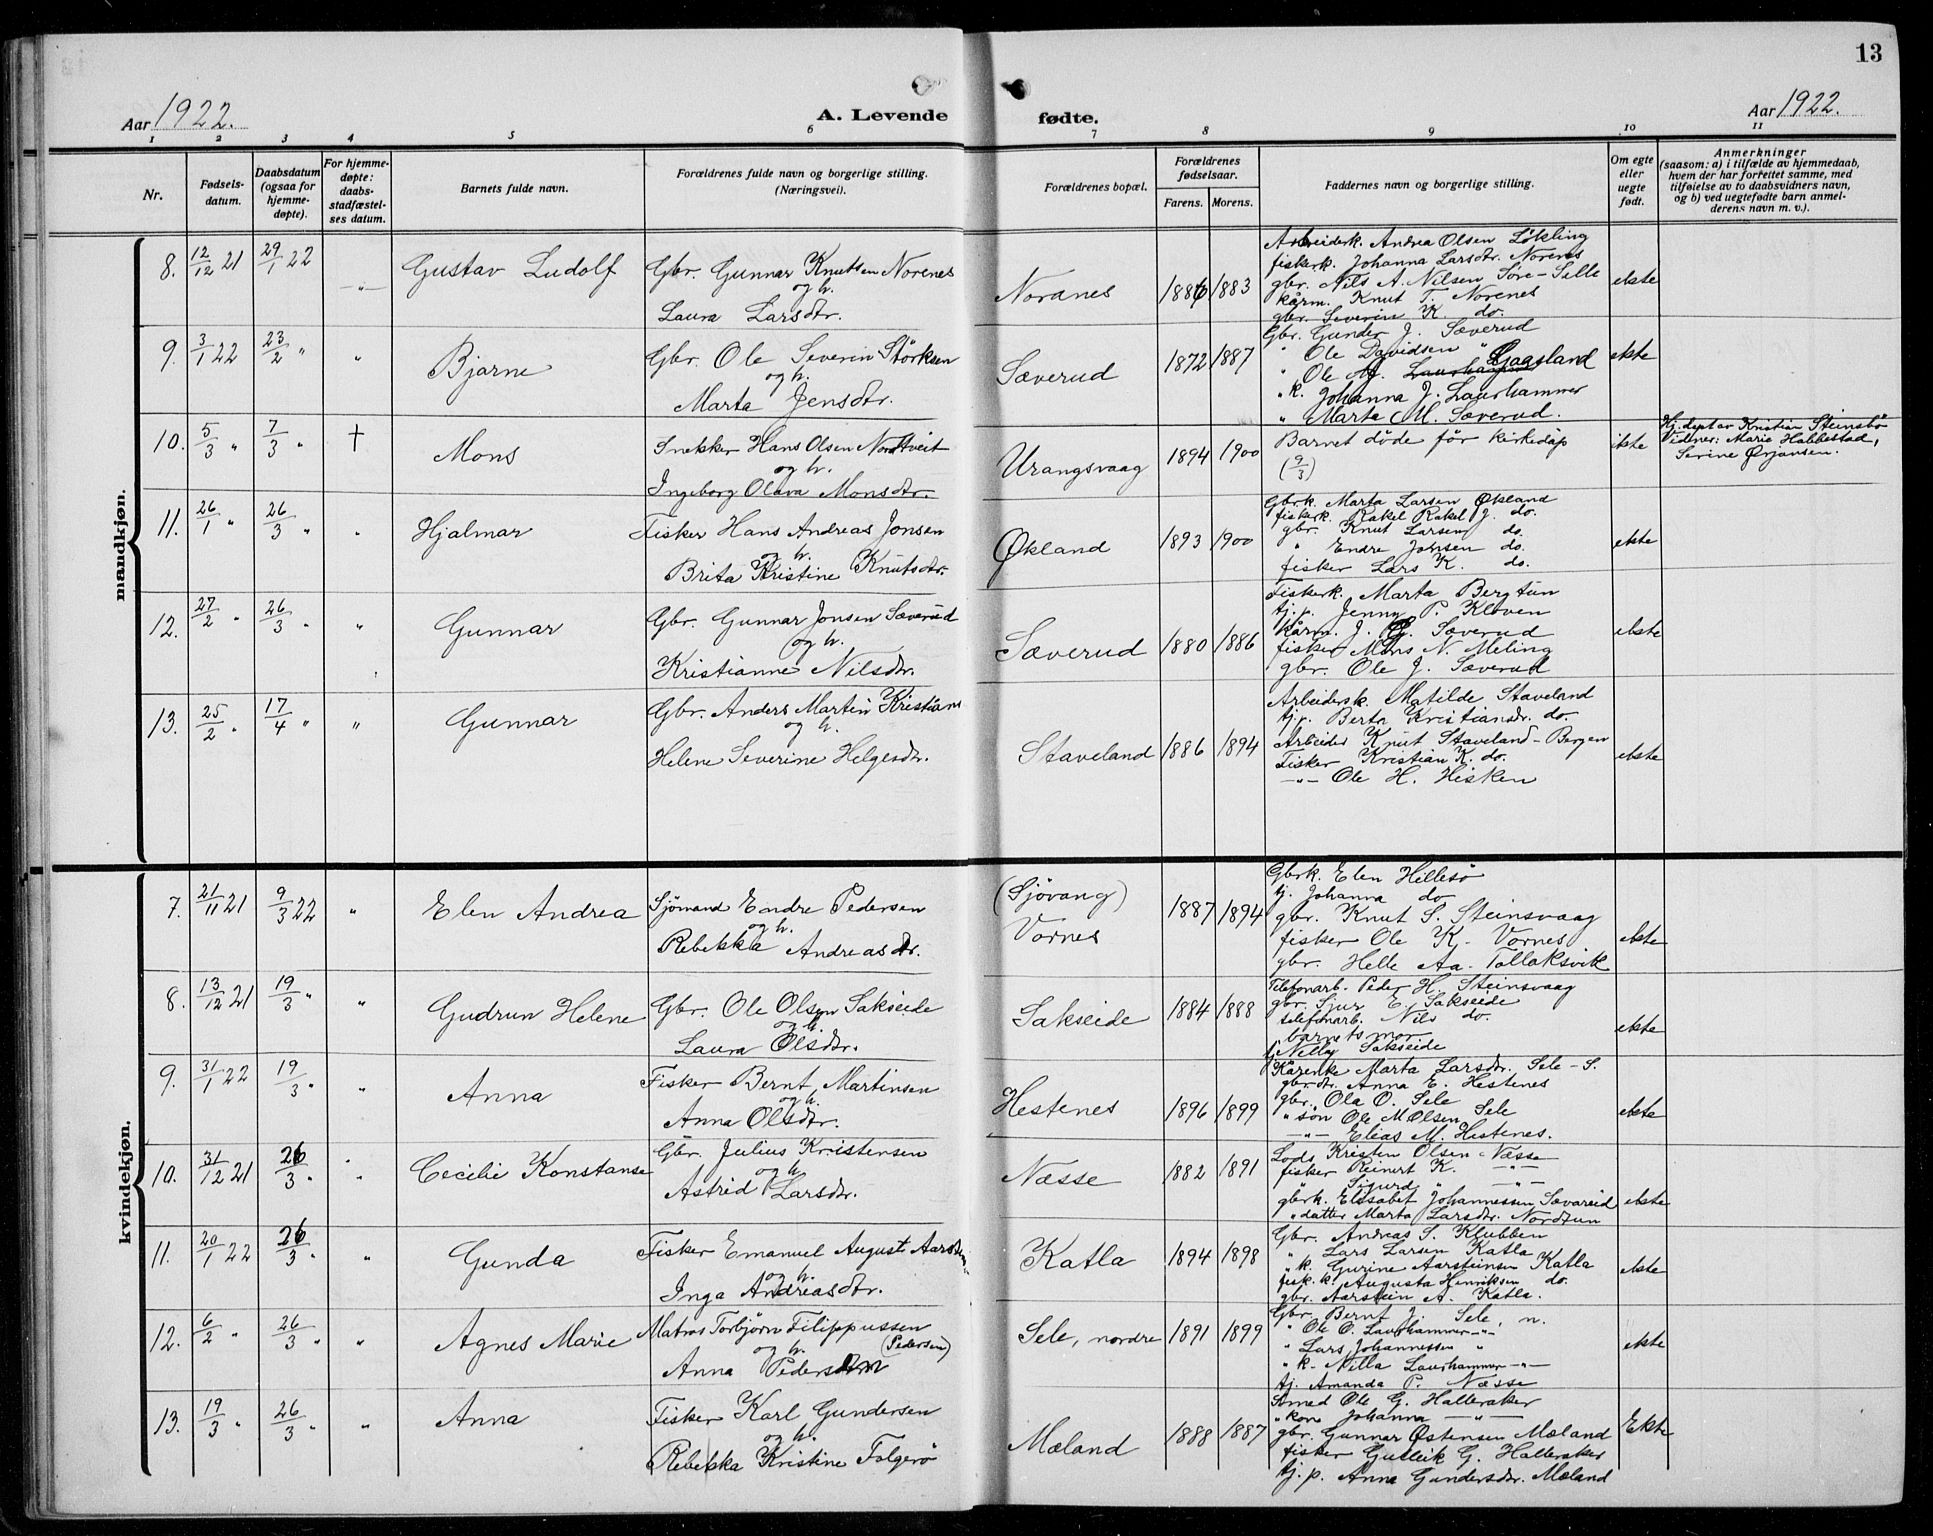 13
Aar 1922.
A. Levende
fødte.
Aar 1922.
1 2 3 4 5 6 7 8 9 10 11
Nr.
Fødsels-
datum.
Daabsdatum
(ogsaa for
hjemme-
døpte).
For hjemme-
døpte:
daabs-
stadfæstel-
ses datum.
Barnets fulde navn.
Forældrenes fulde navn og borgerlige stilling.
(Næringsvei).
Forældrenes bopæl.
Forældrenes
fødselsaar.
Farens. Morens.
Faddernes navn og borgerlige stilling.
Om egte
eller
uegte
født.
Anmerkninger
(saasom: a) i tilfælde av hjemmedaab,
hvem der har forrettet samme, med
tilføielse av to daabsvidners navn,
og b) ved uegtefødte barn anmel-
derens navn m. v.).
mandkjøn.
8. 12/12 21 29/1 22 -"- Gustav Ludolf
Gbr. Gunnar Knutsen Norenes
og h.
Laura Larsdtr.
Nordnes 1886 1883
Arbeiderk. Andrea Olsen Løkling
fiskerk. Johanna Larsdtr. Norenes
gbr. Nils A. Nilsen Søre-Selle
kårm. Knut T. Norenes
gbr. Severin K. do.
ekte
9. 3/1 22 23/2 " " Bjarne
Gbr. Ole Severin Størksen
og h.
Marta Jensdtr.
Sæverud 1872 1887
Gbr. Gunder J. Sæverud
" Ole Davidsen "
" Ole M. Gaasland
"k. Johanna J. Laurhammer
" Marta M. Sæverud.
ekte
10. 5/3 " 7/3 " † Mons
Snekker Hans Olsen Nordtveit
og h.
Ingeborg Olava Monsdtr.
Urangsvaag 1894 1900
Barnet døde før kirkedåp
(9/3)
ekte
Hj.døpt av Kristian Steinsbø
Vidner: Marie Habbestad,
Serine Ørjansen.
11. 26/1 " 26/3 " " Hjalmar
Fisker Hans Andreas Jonsen
og h.
Brita Kristine Knutsdtr.
Økland 1893 1900
Gbrk. Marta Larsen Økland
fiskerk. Rakel Rakel J. do.
gbr. Knut Larsen do.
" Endre Jonsen do.
fisker Lars K. do.
ekte
12. 27/2 " 26/3 " " Gunnar
Gbr. Gunnar Jonsen Sæverud
og h.
Kristianne Nilsdtr.
Sæverud 1880 1886
Fiskerk. Marta Bergtun
tj.p. Jenny P. Kloven
kårm. J. G. Sæverud
fisker Mons N. Meling
gbr. Ole J. Sæverud
ekte
13. 25/2 " 17/4 " " Gunnar
Gbr. Anders Martin Kristians
og h.
Helene Severine Helgesdtr.
Staveland 1886 1894
Arbeidersk. Matilde Staveland
tj.p. Berta Kristiansdr. do.
Arbeider Knut Staveland - Bergen
Fisker Kristian K. do.
-"- Ole H. Hisken
ekte
kvindekjøn.
7. 21/11 21 9/3 22 " Elen Andrea
Sjømand Endre Pedersen
og h.
Rebekka Andreasdtr.
(Sjøvang)
Vornes 1887 1894
Gbrk. Elen Hillesø
tj. Johanna do
gbr. Knut S. Steinsvaag
fisker Ole K. Vornes
gbr. Helle Aa. Tollaksvik
ekte
8. 13/12 21 19/3 " " Gudrun Helene
Gbr. Ole Olsen Sakseide
og h.
Laura Olsdtr.
Sakseide 1884 1888
Telefonarb. Peder H. Steinsvaag
gbr. Sjur E. Sakseide
telefonarb. Nils do.
barnets mor
tj. Nelly Sakseide
ekte
9. 31/1 22 19/3 " " Anna
Fisker Bernt Martinsen
og h.
Anna Olsdtr.
Hestenes 1896 1899
Kårenke Marta Larsdtr. Sele - S.
gbrdtr. Anna E. Hestenes
gbr. Ola O. Sele
" søn Ole M Olsen Sele
-"- Elias M. Hestenes.
ekte
10. 31/12 21 26/3 " " Cecilie Konstanse
Gbr. Julius Kristensen
og h
Astrid Larsdtr.
Næsse 1882 1891
Lods Kristen Olsen Næsse
fisker Reinert K. -"-
" Sigurd " -"-
gbrk. Elisabet Johannessen Sævareid
" datter Marta Larsdtr. Nordtun
ekte
11. 20/1 22 26/3 " " Gunda
Fisker Emanuel August Aarstein
og h.
Inga Andreasdtr.
Katla 1894 1898
Gbr. Andreas S. Klubben
" Lars Larsen Katla
" k. Gurine Aarsteinsen Katla
fisk. k. Augusta Henriksen do.
gbr. Aarstein A. Katla.
ekte
12. 6/2 " 26/3 " " Agnes Marie
Matros Torbjørn Filippussen
og h. (Pedersen)
Anna Pedersdtr
Sele, nordre 1891 1899
Gbr. Bernt J. Sele, n.
" Ole O. Laurhammer -"-
" Lars Johannessen "
" k. Nilla Laurhammer -"-
tj. Amanda P. Næsse
ekte
13. 19/3 " 26/3 " " Anna
Fisker Karl Gundersen
og h.
Rebekka Kristine Folgerø
Mæland 1888 1887
Smed Ole G. Halleraker
" kone Johanna -"-
gbr. Gunnar Østensen Mæland
fisker Gulleik G. Halleraker
tj.p. Anna Gundersdtr. Mæland
Ekte